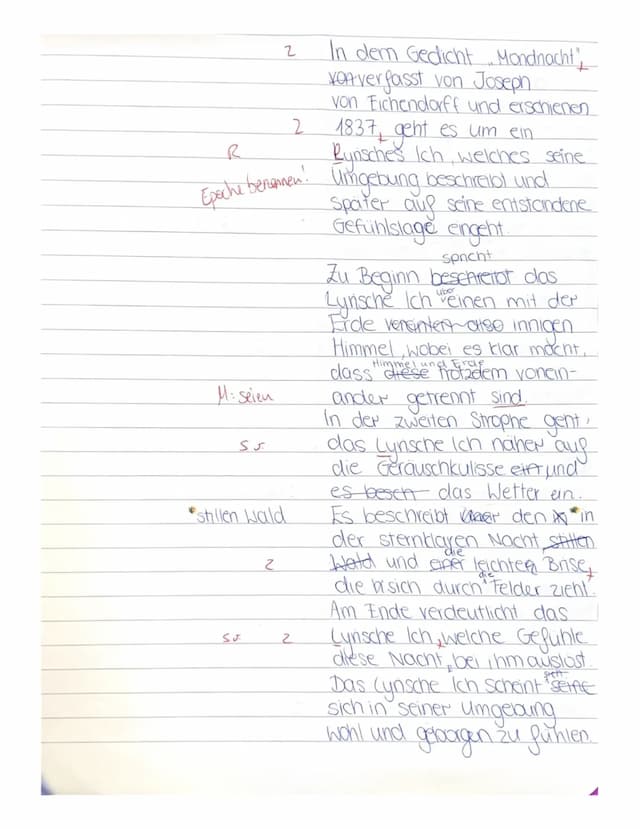 Z In dem Gedicht „Mondnacht",
von verfasst von Joseph
von Eichendorff und erschienen
Z 1837, geht es um ein
R Lyrisches Ich, welches seine
Epoche benennen! Umgebung beschreibt und
später auf seine entstandene
Gefühlslage eingeht.
spricht
Zu Beginn beschreibt das
Lyrische Ich über einen mit der
Erde vereinten also innigen
Himmel, wobei es klar macht,
Himmel und Erde
dass diese trotzdem vonein-
M: seien ander getrennt sind.
In der zweiten Strophe geht
das Lyrische Ich näher auf
die Geräuschkulisse ein und
es besch das Wetter ein.
*stillen Wald Es beschreibt über den * in
der sternklaren Nacht stillen
Z Wald und einer die leichten Brise,
die sich durch die Felder zieht.
Am Ende verdeutlicht das
Z Lyrische Ich, welche Gefühle
diese Nacht, bei ihm auslöst.
Das Lyrische Ich scheint seine
sich in seiner Umgebung
wohl und geborgen zu fühlen.